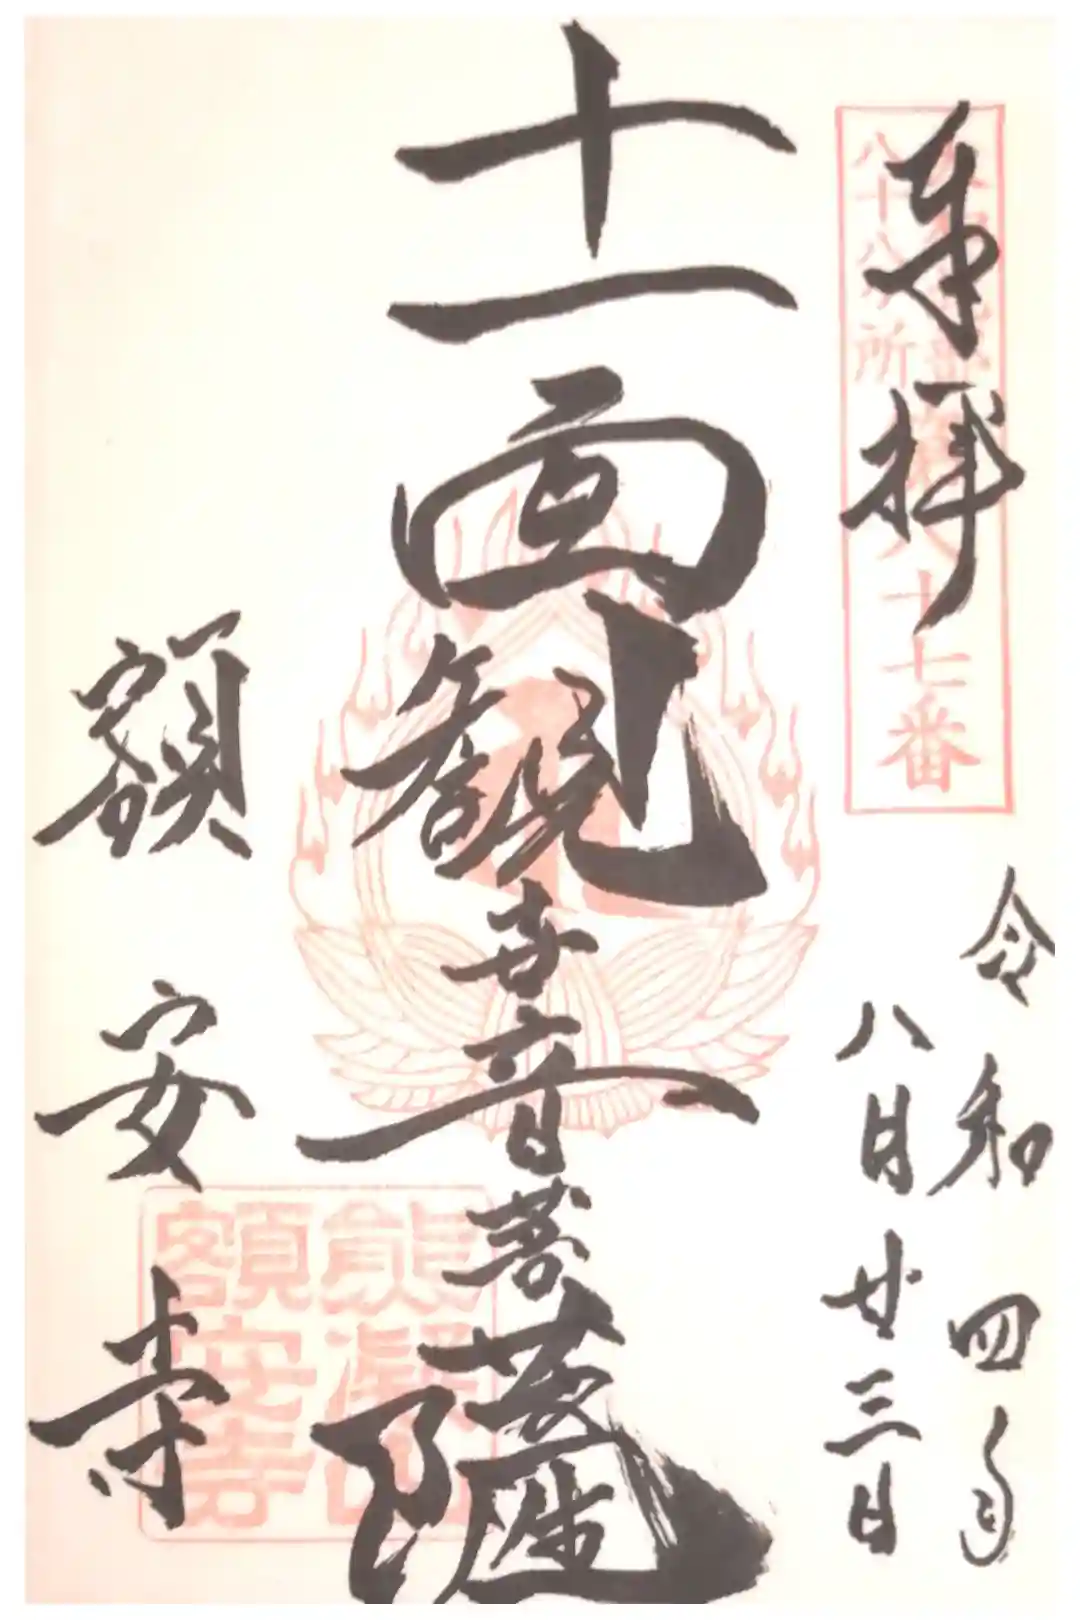 奉拝
八十八ヶ所
八十七番
令和四年
八月廿三日
十一面観世音菩薩
額安寺
熊凝山
額安寺